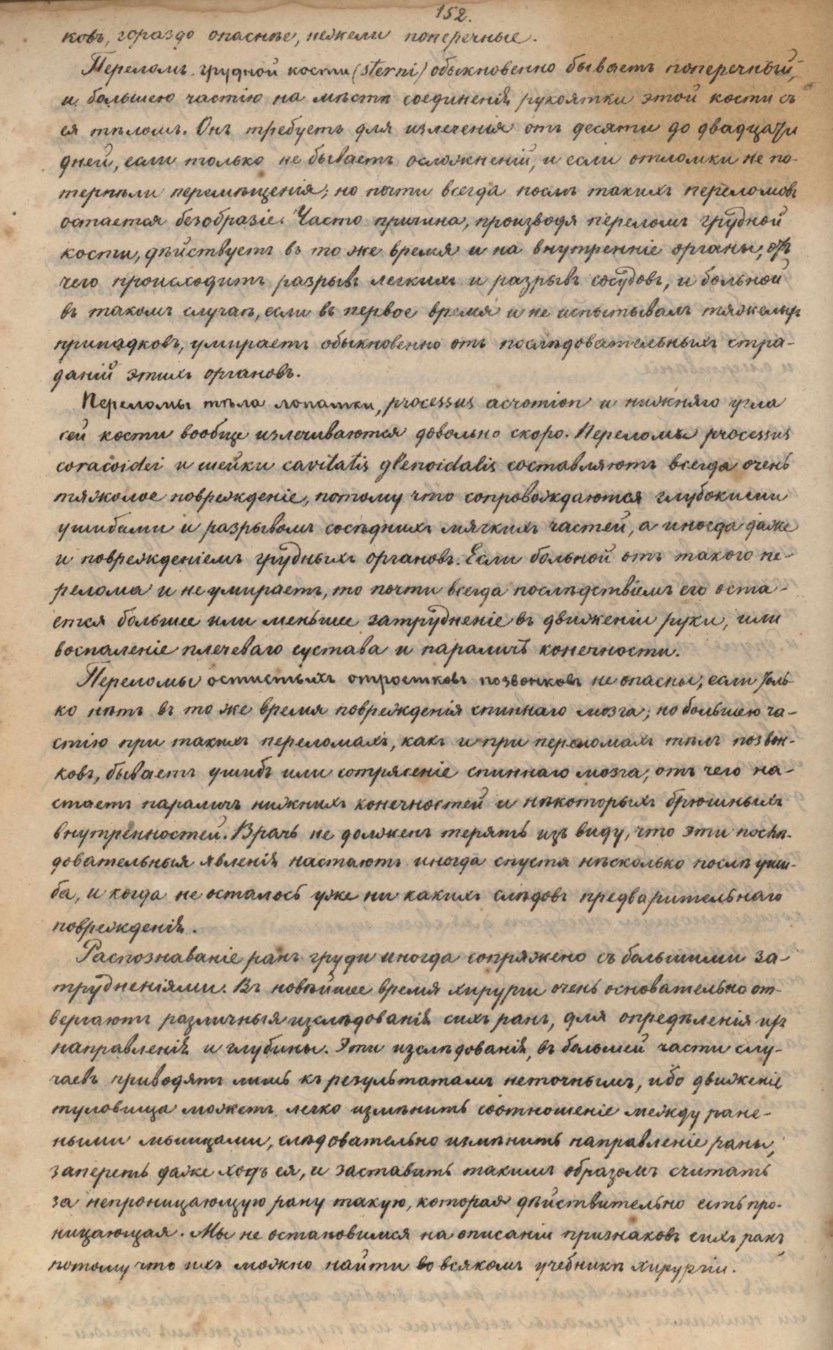 152.
ковъ, гораздо опаснѣе, нежели поперечные.
Переломъ грудной кости (sterni) обыкновенно бываетъ поперечный,
и большею частію на мѣстѣ соединенія рукоятки этой кости съ
ея тѣломъ. Онъ требуетъ для излеченія отъ десяти до двадцати
дней, если только не бываетъ осложненій, и если отломки не по-
терпѣли перемѣщенія; но почти всегда послѣ такихъ переломовъ
остается безобразіе. Часто причина, производя переломъ грудной
кости, дѣйствуетъ въ то же время и на внутренніе органы, отъ
чего происходитъ разрывъ легкихъ и разрывъ сосудовъ, и больной
въ такомъ случаѣ, если въ первое время и не испытывалъ тяжелыхъ
припадковъ, умираетъ обыкновенно отъ послѣдовательныхъ стра-
даній этихъ органовъ.
Переломы тѣла лопатки, processus acromion и нижняго угла
сей кости вообще излечиваются довольно скоро. Переломы processus
coracoidei и шейки cavitatis glenoidalis составляютъ всегда очень
тяжолое поврежденіе, потому что сопровождаются глубокими
ушибами и разрывомъ сосѣднихъ мягкихъ частей, а иногда даже
и поврежденіемъ грудныхъ органовъ. Если больной отъ такого пе-
релома и не умираетъ, то почти всегда послѣдствіемъ его оста-
ется большее или меньшее затрудненіе въ движеніи руки, или
воспаленіе плечеваго сустава и параличъ конечности.
Переломы остистыхъ отростковъ позвонковъ не опасны, если толь-
ко нѣтъ въ то же время поврежденія спиннаго мозга; но большею ча-
стію при такихъ переломахъ, какъ и при переломахъ тѣлъ позвон-
ковъ, бываетъ ушибъ или сотрясеніе спиннаго мозга, отъ чего на-
стаетъ параличъ нижнихъ конечностей и нѣкоторыхъ брюшныхъ
внутренностей. Врачь не долженъ терять изъ виду, что эти послѣ-
довательныя явленія настаютъ иногда спустя нѣсколько послѣ уши-
ба, и когда не осталось уже ни какихъ слѣдовъ предварительнаго
поврежденія.
Распознаваніе ранъ груди иногда сопряжено съ большими за-
трудненіями. Въ новѣйшее время хирурги очень основательно от-
вергаютъ различныя изслѣдованія сихъ ранъ, для опредѣленія ихъ
направленія и глубины. Эти изслѣдованія, въ большей части слу-
чаевъ приводятъ лишь къ результатамъ неточнымъ, ибо движеніе
туловища можетъ легко измѣнить соотношеніе между ране-
ными мышцами, слѣдовательно измѣнить направленіе раны,
запереть даже ходъ ея, и заставить такимъ образомъ считать
за непроницающую рану такую, которая дѣйствительно есть про-
ницающая. Мы не остановимся на описаніи признаковъ сихъ ранъ
потому что ихъ можно найти во всякомъ учебникѣ хирургіи.